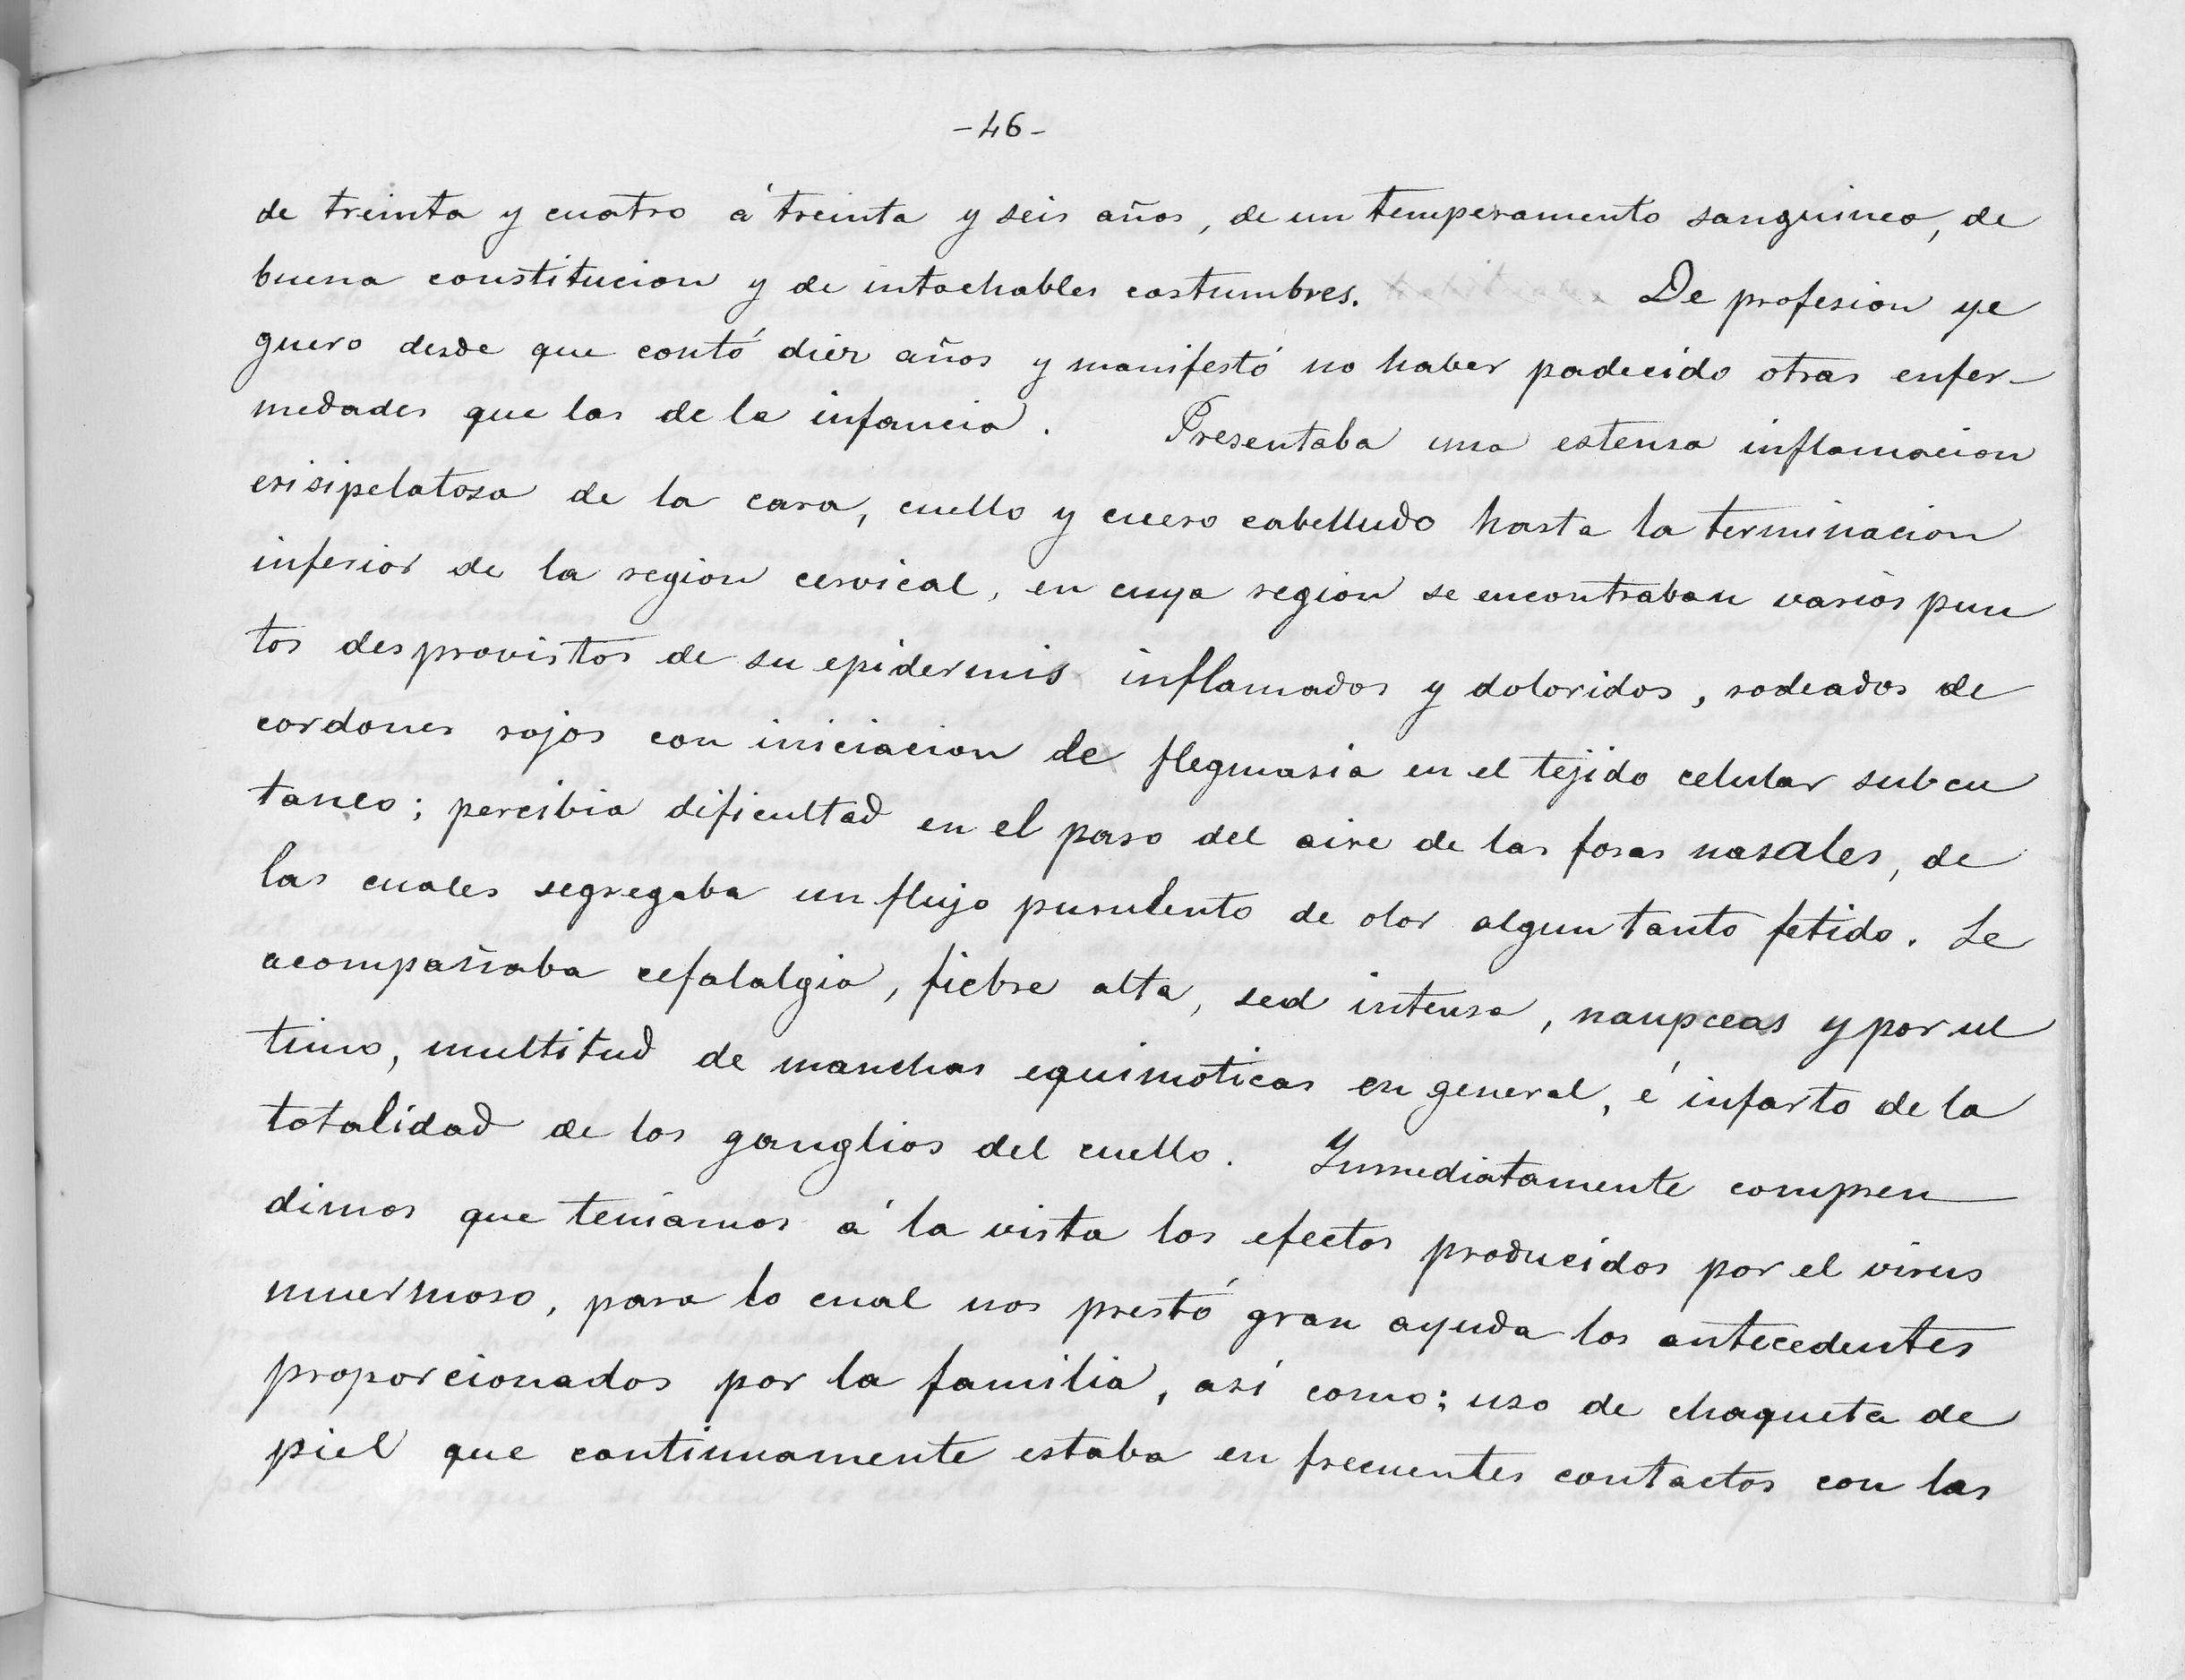 -46-
de treinta y cuatro á treinta y seis años, de un temperamento sanguineo, de
buena constitucion y de intachables costumbres. De profesion ye
guero desde que contó diez años y manifestó no haber padecido otras enfer-
medades que las de la infancia. Presentaba una estensa inflamacion
erisipelatosa de la cara, cuello y cuero cabelludo hasta la terminacion
inferior de la region cervical, en cuya region se encontraban varios pun
tos desprovistos de su epidermis inflamados y doloridos, rodeados de
cordones rojos con iniciacion de flegmasia en el tejido celular subcu
taneo; percibia dificultad en el paso del aire de las fosas nasales, de
las cuales segregaba un flujo purulento de olor algun tanto fetido. Le
acompañaba cefalalgia, fiebre alta, sed intensa, y por ul
timo, multitud de manchas equimoticas en general, é infarto de la
totalidad de los ganglios del cuello. Inmediatamente compren
dimos que teniamos á la vista los efectos producidos por el virus
muermoso, para lo cual nos prestó gran ayuda los antecedentes
proporcionados por la familia, así como: uso de chaqueta de
piel que continuamente estaba en frecuentes contactos con las